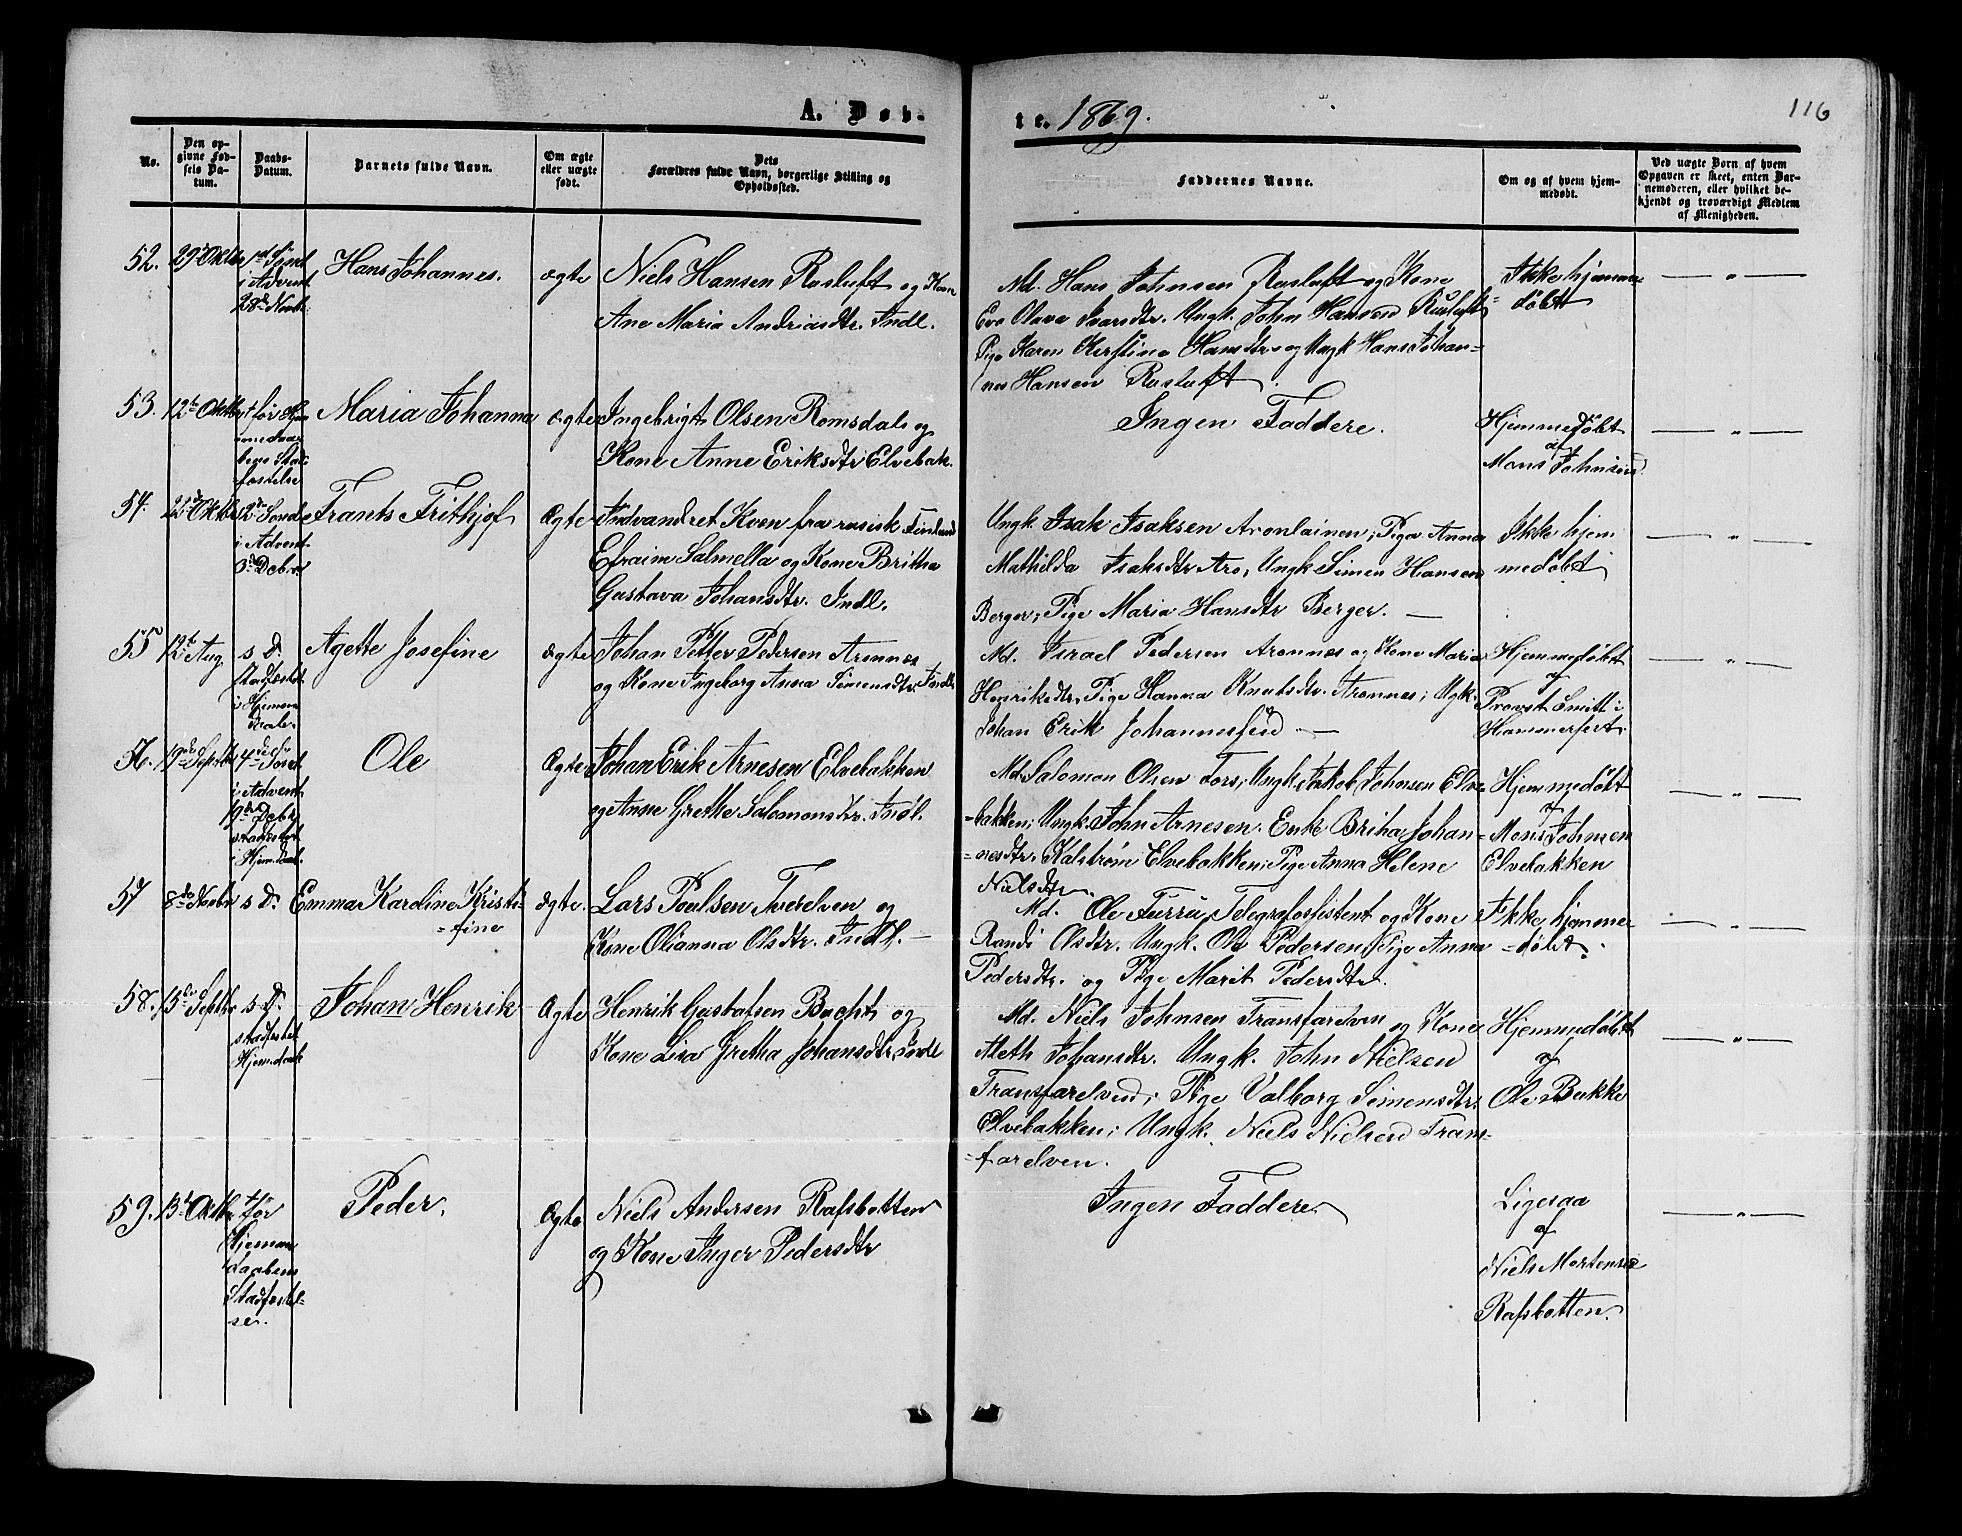 A. Døb-
te. 1869.
116
No.
Den op-
givne Fød-
sels Da-
tum.
Daabs-
Datum.
Barnets fulde Navn.
Om ægte
eller uægte
født.
Dets
Forældres fulde Navn, borgerlige Stilling og
Opholdssted.
Faddernes Navne.
Om og af hvem hjem-
medøbt.
Ved uægte Born af hvem
Opgaven er skeet, enten Bar-
nemoderen, eller hvilket be-
kjendt og troværdigt Medlem
af Menigheden.
52.
29 Oktbr
1st Sønd
i Advent
28de Novbr.
Hans Johannes.
ægte
Niels Hansen Rusluft og Kone
Ane Maria Andriasdtr. Indl.
Md. Hans Johnsen Rusluft og Kone
Eva Olava Ivarsdtr. Ungk. John Hansen Rusluft
Pige Karen Kirstine Hansdtr og Ungk Hans Johan-
nes Hansen Rusluft.
Ikke hjemme-
døbt
— " —
53.
12te Oktbr
† før Hjem
medaa-
bens Stad-
fæstelse
Maria Johanna
ægte
Ingebrigt Olsen Romsdal og
Kone Anne Eriksdtr Elvebak.
Ingen Faddere.
Hjemmedøbt
af
Mons Johnsen
— " —
54.
22de Oktbr
2den Sønd
i Advent
5te Debr
Frants Frithjof
Ægte
Indvandret Kvæn fra russisk Finland
Efraim Salmella og Kone Britha
Gustava Johansdtr. Indl.
Ungk Isak Isaksen Aronlainen; Pige Anna
Mathilda Isaksdtr Aro, Ungk Simen Hansen
Berger; Pige Maria Hansdtr Berger. —
Ikke hjem
medøbt
— " —
55
12te Aug.
s D.
Stadfæstet
i Hjemme
Daab.
Agethe Josefine
ægte
Johan Petter Pedersen Aronnes
og Kone Ingeborg Anna Simensdtr. Indl.
Md. Israel Pedersen Aronnes og Kone Maria
Henriksdtr. Pige Hanna Knutsdtr. Aronnes; Ugk.
Johan Erik Johannesen —
Hjemmedøbt
af
Provst Smitt i
Hammerfest.
— " —
56.
19de Septbr
4de Sønd
i Advent
19de Debr
stadfæstet
i Hjem. Daab.
Ole
Ægte
Johan Erik Arnesen Elvebakken
og Anne Grethe Salomonsdtr. Indl.
Md. Salomon Olsen Fors; Ungk Jakob Johansen Elve
-bakken; Ungk. John Arnesen. Enke Britha Johan-
-nesdtr. Kalstrøm Elvebakken; Pige Anna Helene
Nielsdtr.
Hjemmedøbt
af
Mons Johnsen
Elvebakken
— " —
57
8de Novbr
s D.
Emma Karoline Kristi-
-fine
ægte.
Lars Poulsen Tverelven og
Kone Olianna Olsdtr. Indl. —
Md. Ole Furru, Telegrafassistent og Kone
Randi Olsdtr. Ungk. Ole Pedersen, Pige Anna
Pedersdtr. og Pige Marit Pedersdtr.
Ikke hjemme
-døbt.
— " —
58.
15de Septbr
s D.
stadfæstet
Hjemdaab
Johan Henrik
Ægte
Henrik Gustafsen Bucht og
Kone Lisa Gretha Johansdtr, Indl
Md. Niels Johnsen Transfarelven og Kone
Aleth Johansdtr. Ungk. John Nielsen
Transfarelven; Pige Valborg Simensdtr.
Elvebakken; Ungk. Niels Nielsen Trans-
-farelven.
Hjemmedøbt
af
Ole Bakke
— " —
59.
13de Oktbr
† før
Hjemme
daabens
Stadfæstel-
se.
Peder.
Ægte
Niels Andersen Rafsbotten
og Kone Inger Pedersdtr
Ingen Faddere.
Ligesaa
af
Niels Mortensen
Rafsbotten.
— " —